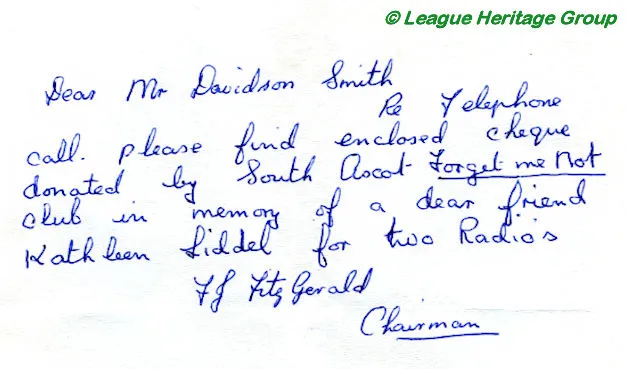 © League Heritage Group
Dear Mr Davidson Smith
Re Telephone
call. please find enclosed cheque
donated by South Ascot Forget me Not
club in memory of a dear friend
Kathleen Liddel for two Radio's
FJ FitzGerald
Chairman